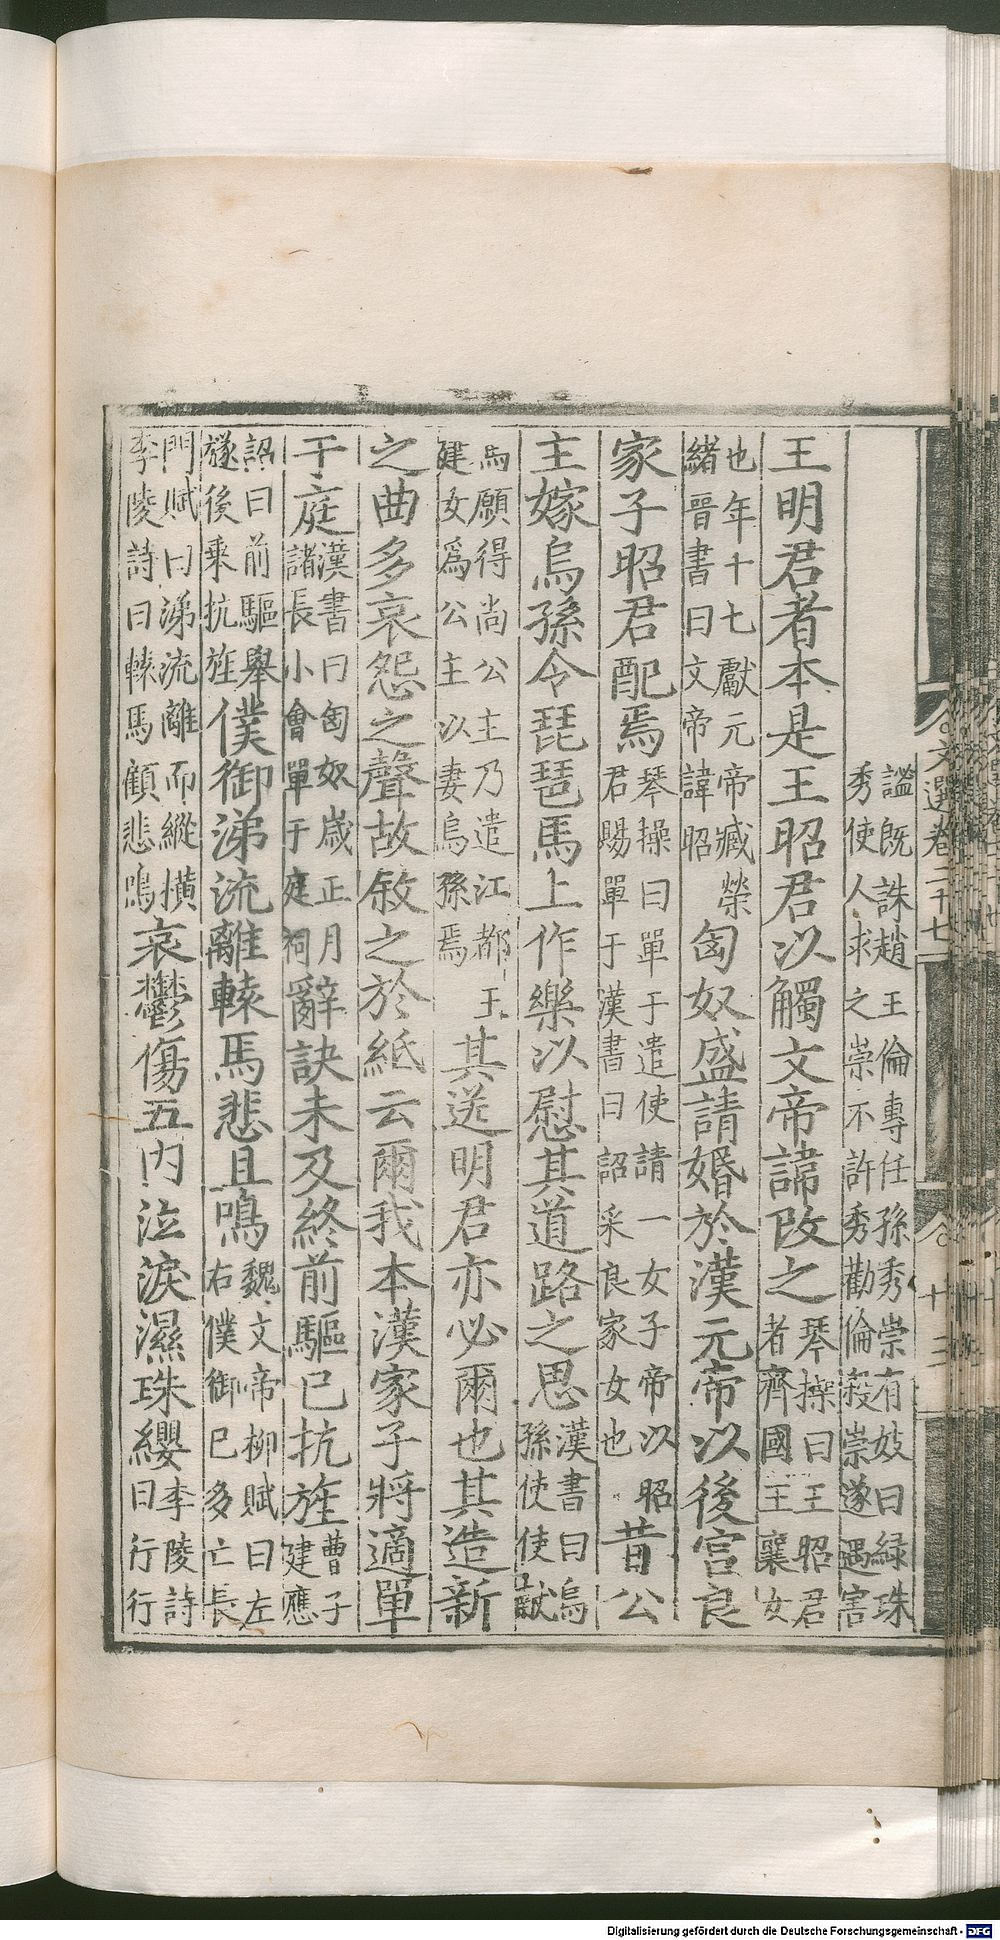 文選卷二十七
十三
謐既誅趙王倫專任孫秀崇有妓曰緑珠
秀使人求之崇不許秀勸倫殺崇遂遇害
王明君者本是王昭君以觸文帝諱改之琴操曰王昭君
者齊國王襄女
也年十七獻元帝臧榮
緒晉書曰文帝諱昭匈奴盛請婚於漢元帝以後宫良
家子昭君配焉琴操曰單于遣使請一女子帝以昭
君賜單于漢書曰詔采良家女也昔公
主嫁烏孫令琵琶馬上作樂以慰其道路之思漢書曰烏
孫使使獻
馬願得尚公主乃遣江都王
建女爲公主以妻烏孫焉其送明君亦必爾也其造新
之曲多哀怨之聲故敘之於紙云爾我本漢家子將適單
于庭漢書曰匈奴歲正月
諸長小會單于庭祠辭訣未及終前驅已抗旌曹子
建應
詔曰前驅舉
燧後乘抗旌僕御涕流離轅馬悲且鳴魏文帝柳賦曰左
右僕御已多亡長
門賦曰涕流離而縱橫
李陵詩曰轅馬顧悲鳴哀鬱傷五内泣淚濕珠纓李陵詩
曰行行
Digitalisierung gefördert durch die Deutsche Forschungsgemeinschaft - DFG